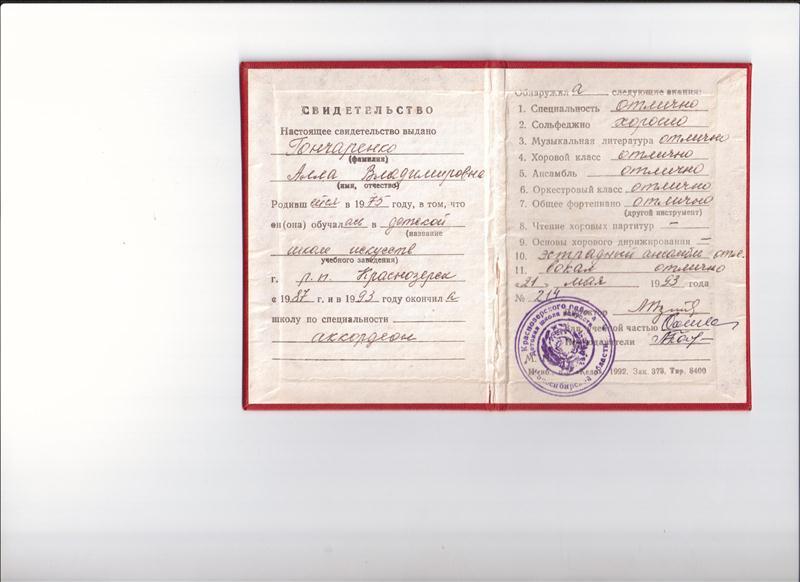 СВИДЕТЕЛЬСТВО
Настоящее свидетельство выдано
Гончаренко
(фамилия)
Алла Владимировна
(имя, отчество)
Родившейся в 1975 году, в том, что
он(она) обучалась в детской
(название
школе искусств
учебного заведения)
г. р.п. Краснозерск
с 1987 г. и в 1993 году окончила
школу по специальности
аккордеон
Обнаружила следующие знания:
1. Специальность отлично
2. Сольфеджио хорошо
3. Музыкальная литература отлично
4. Хоровой класс отлично
5. Ансамбль отлично
6. Оркестровый класс отлично
7. Общее фортепиано отлично
(другой инструмент)
8. Чтение хоровых партитур —
9. Основы хорового дирижирования —
10. эстрадный ансамбль отл.
11. вокал отлично
«21» мая 1993 года
№ 214
учебной частью
Преподаватели
М.
1992. Зак. 373. Тир. 8400
Краснозерского района
Новосибирской области